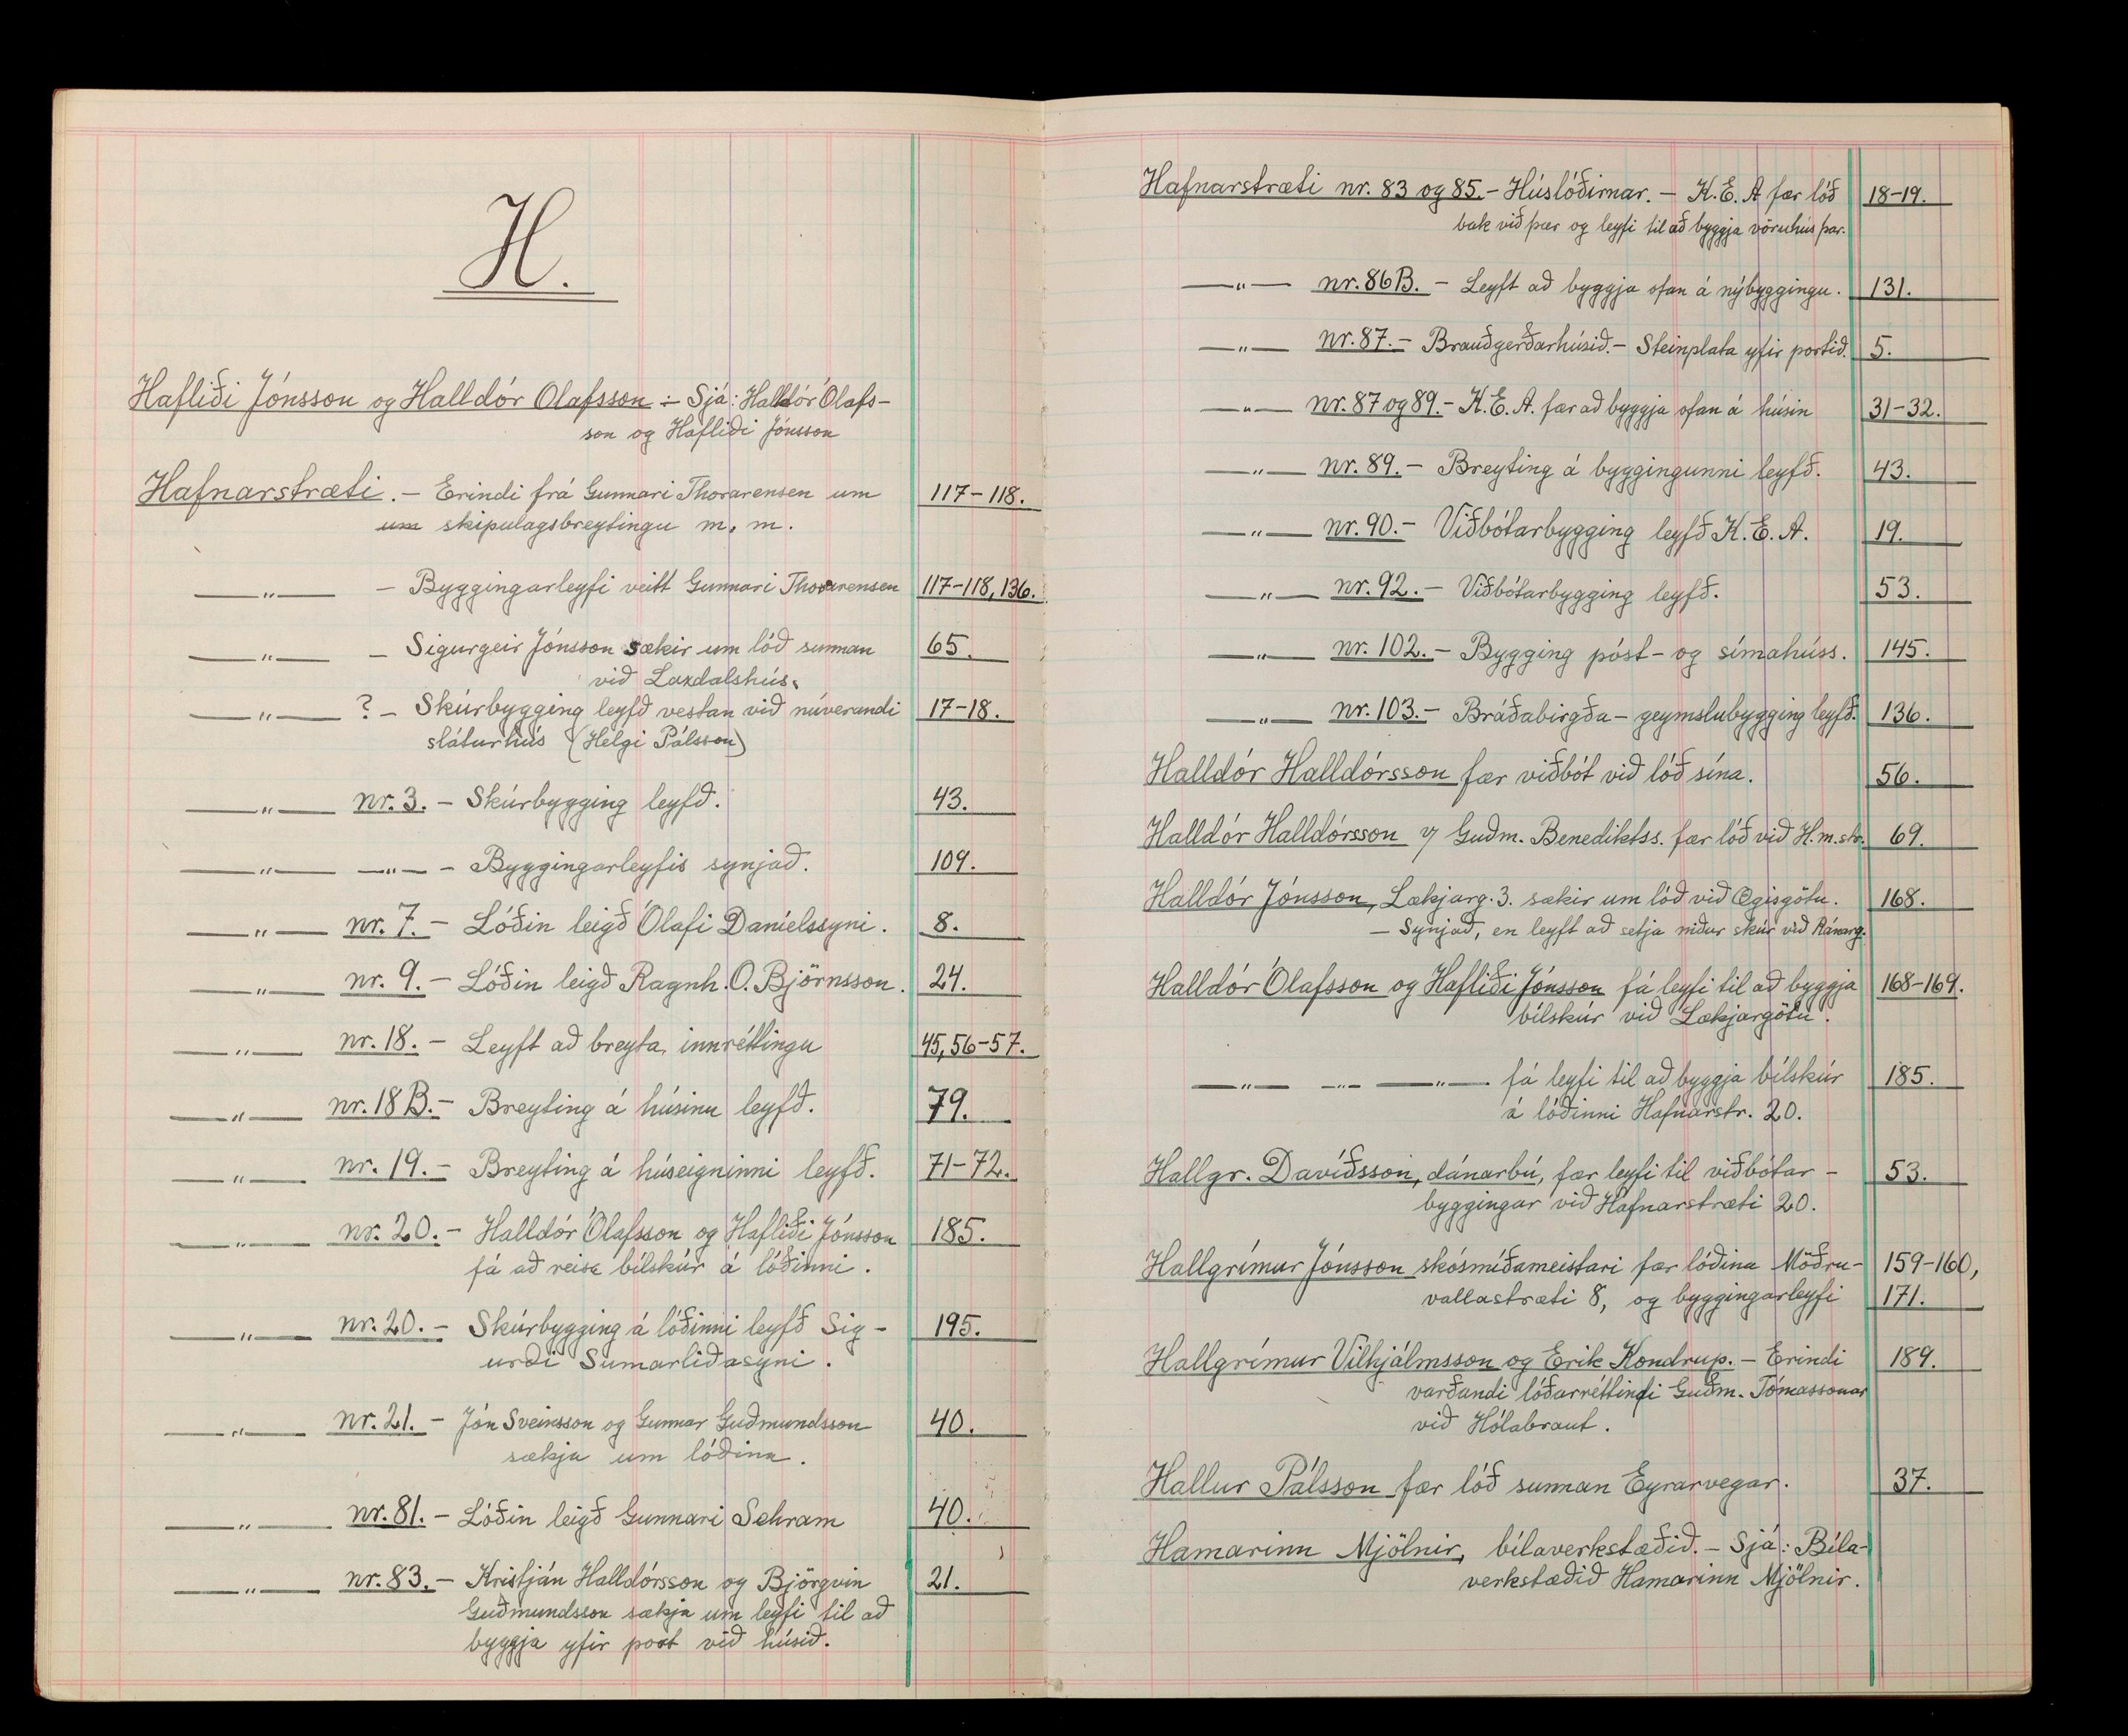 H.
Hafliði Jónsson og Halldór Ólafsson :- Sjá: Halldór Ólafs-
son og Hafliði Jónsson
Hafnarstræti. - Erindi frá Gunnari Thorarensen um 117-118.
um skipulagsbreytingu m. m.
—„— - Byggingarleyfi veitt Gunnari Thorarensen 117-118, 136.
—„— - Sigurgeir Jónsson sækir um lóð sunnan 65.
við Laxdalshús.
—„— ? - Skúrbygging leyfð vestan við núverandi 17-18.
sláturhús (Helgi Pálsson)
—„— nr. 3. - Skúrbygging leyfð. 43.
—„— —„— - Byggingarleyfis synjað. 109.
—„— nr. 7. - Lóðin leigð Ólafi Daníelssyni. 8.
—„— nr. 9. - Lóðin leigð Ragnh. O. Björnsson. 24.
—„— nr. 18. - Leyft að breyta innréttingu 45, 56-57.
—„— nr. 18 B. - Breyting á húsinu leyfð. 79.
—„— nr. 19. - Breyting á húseigninni leyfð. 71-72.
—„— nr. 20. - Halldór Ólafsson og Hafliði Jónsson 185.
fá að reisa bílskúr á lóðinni.
—„— nr. 20. - Skúrbygging á lóðinni leyfð Sig- 195.
urði Sumarliðasyni.
—„— nr. 21. - Jón Sveinsson og Gunnar Guðmundsson 40.
sækja um lóðina.
—„— nr. 81. - Lóðin leigð Gunnari Schram 40.
—„— nr. 83. - Kristján Halldórsson og Björgvin 21.
Guðmundsson sækja um leyfi til að
byggja yfir port við húsið.
Hafnarstræti nr. 83 og 85. - Húslóðirnar. - K.E.A fær lóð 18-19.
bak við þær og leyfi til að byggja vöruhús þar.
—„— nr. 86B. - Leyft að byggja ofan á nýbyggingu. 131.
—„— nr. 87. - Brauðgerðarhúsið. - Steinplata yfir portið. 5.
—„— nr. 87 og 89. - K.E.A. fær að byggja ofan á húsin 31-32.
—„— nr. 89. - Breyting á byggingunni leyfð. 43.
—„— nr. 90. - Viðbótarbygging leyfð K.E.A. 19.
—„— nr. 92. - Viðbótarbygging leyfð. 53.
—„— nr. 102. - Bygging póst- og símahúss. 145.
—„— nr. 103. - Bráðabirgða-geymslubygging leyfð. 136.
Halldór Halldórsson fær viðbót við lóð sína. 56.
Halldór Halldórsson Guðm. Benediktss. fær lóð við H.m.str. 69.
Halldór Jónsson, Lækjarg. 3. sækir um lóð við Ægisgötu. 168.
- Synjað, en leyft að setja niður skúr við Ránarg.
Halldór Ólafsson og Hafliði Jónsson fá leyfi til að byggja 168-169.
bílskúr við Lækjargötu.
—„— —„— —„— fá leyfi til að byggja bílskúr 185.
á lóðinni Hafnarstr. 20.
Hallgr. Davíðsson, dánarbú, fær leyfi til viðbótar- 53.
byggingar við Hafnarstræti 20.
Hallgrímur Jónsson skósmíðameistari fær lóðina Möðru- 159-160,
vallastræti 8, og byggingarleyfi 171.
Hallgrímur Vilhjálmsson og Erik Kondrup. - Erindi 189.
varðandi lóðarréttindi Guðm. Tómassonar
við Hólabraut.
Hallur Pálsson fær lóð sunnan Eyrarvegar. 37.
Hamarinn Mjölnir, bílaverkstæðið. - Sjá: Bíla-
verkstæðið Hamarinn Mjölnir.